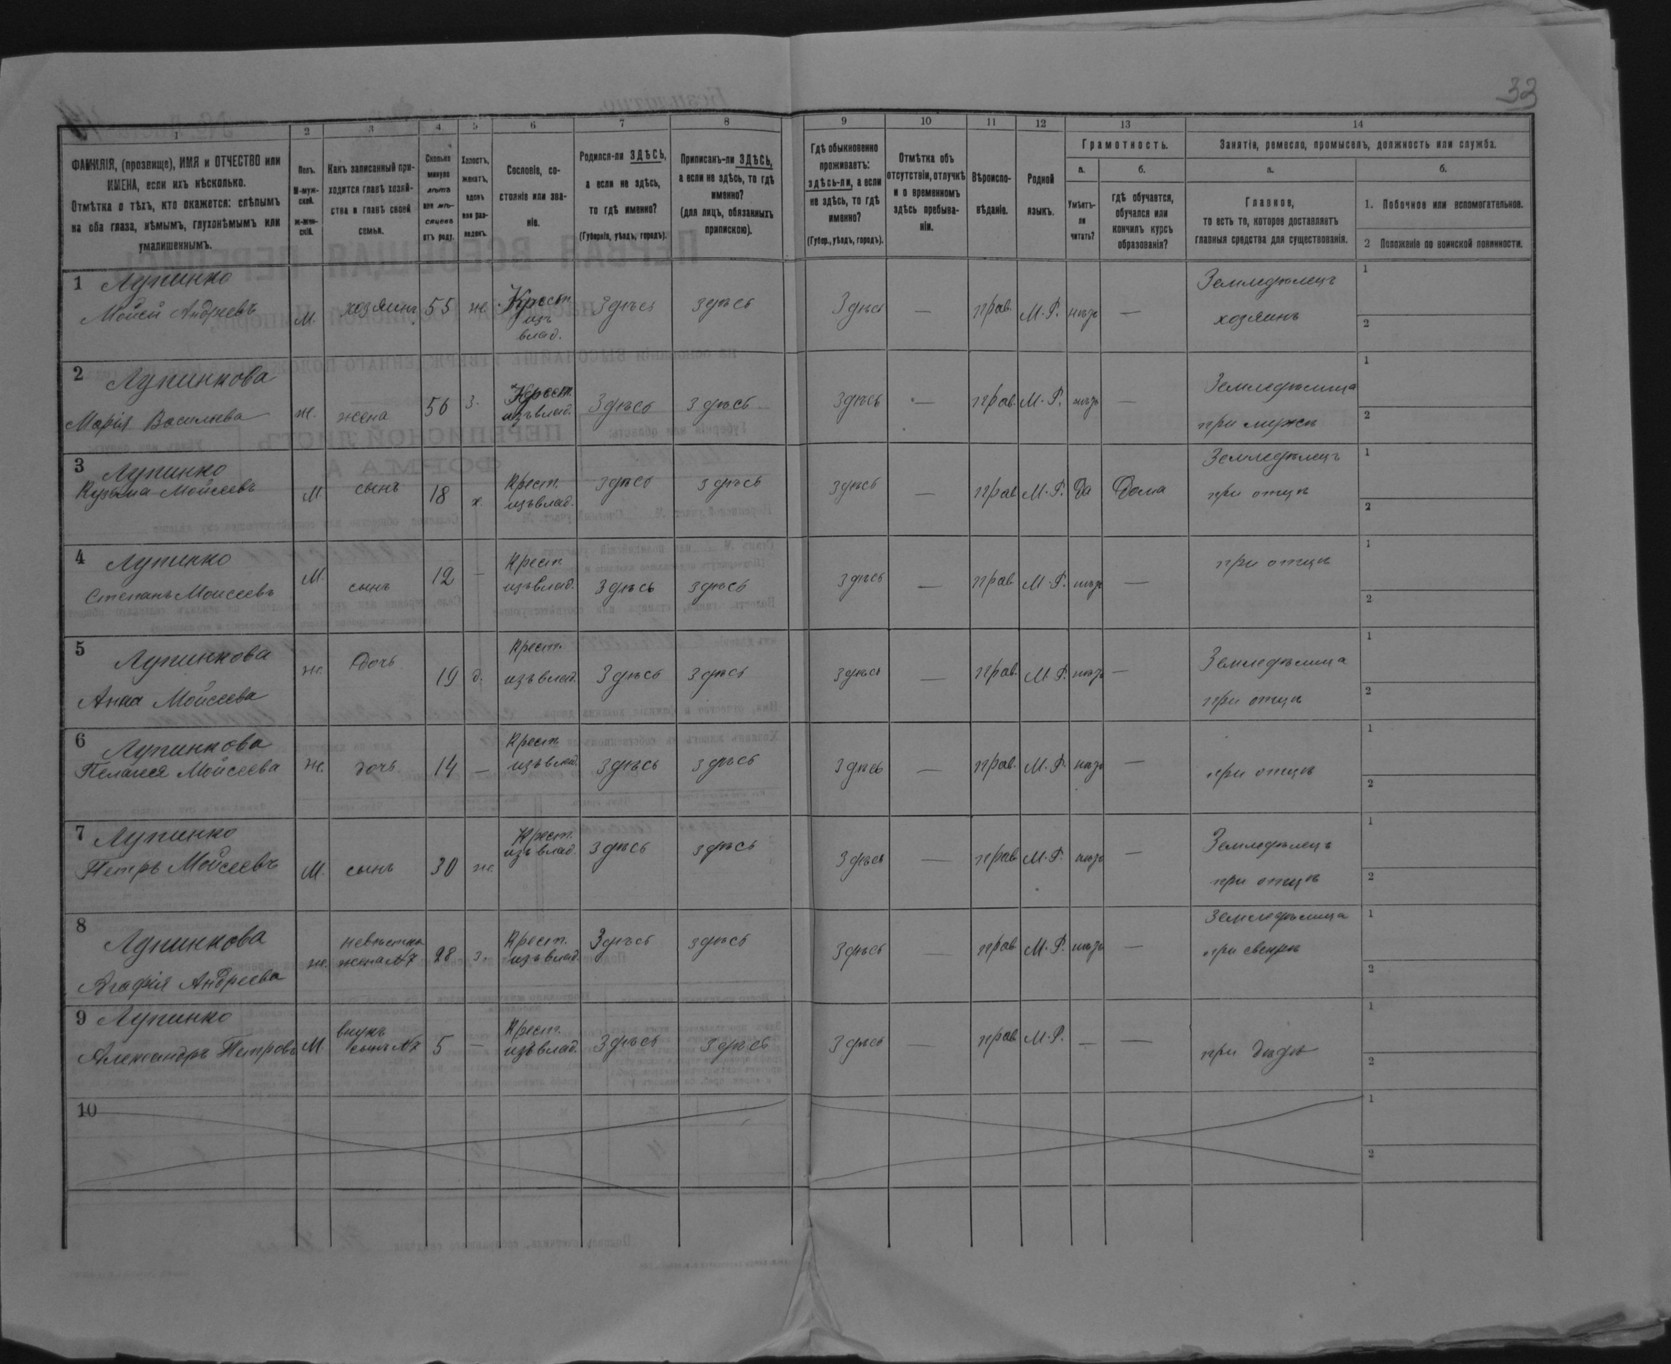 33
1 2 3 4 5 6 7 8 9 10 11 12 13 14
ФАМИЛІЯ, (прозвище), ИМЯ и ОТЧЕСТВО или
ИМЕНА, если ихъ нѣсколько.
Отмѣтка о тѣхъ, кто окажется: слѣпымъ
на оба глаза, нѣмымъ, глухонѣмымъ или
умалишеннымъ.
Полъ.
М-муж-
ской.
Ж-жен-
скій.
Какъ записанный при-
ходится главѣ хозяй-
ства и главѣ своей
семьи.
Сколько
минуло
лѣтъ
или мѣ-
сяцевъ
отъ роду.
Холостъ,
женатъ,
вдовъ
или раз-
веденъ.
Сословіе, со-
стояніе или зва-
ніе.
Родился-ли ЗДѢСЬ,
а если не здѣсь,
то гдѣ именно?
(Губернія, уѣздъ, городъ).
Приписанъ-ли ЗДѢСЬ,
а если не здѣсь, то гдѣ
именно?
(для лицъ, обязанныхъ
припискою).
Гдѣ обыкновенно
проживаетъ:
здѣсь-ли, а если
не здѣсь, то гдѣ
именно?
(Губер., уѣздъ, городъ).
Отмѣтка объ
отсутствіи, отлучкѣ
и о временномъ
здѣсь пребыва-
ніи.
Вѣроиспо-
вѣданіе.
Родной
языкъ.
Грамотность.
а.
Умѣетъ-
ли
читать?
б.
гдѣ обучается,
обучался или
кончилъ курсъ
образованія?
Занятія, ремесло, промыселъ, должность или служба.
а.
Главное,
то есть то, которое доставляетъ
главныя средства для существованія.
б.
1. Побочное или вспомогательное.
2 Положеніе по воинской повинности.
1 Лупинко
Мойсей Андреевъ М хозяинъ 55 ж. Крестн. изъ влад. здѣсь здѣсь здѣсь — прав. М.Р. нѣтъ — Земледѣлецъ хозяинъ 1 2
2 Лупинкова
Марія Васильева ж. жена 56 з. Крест. изъ влад. здѣсь здѣсь здѣсь — прав. М.Р. нѣтъ — Земледѣлица при мужѣ 1 2
3 Лупинко
Кузьма Мойсеевъ М сынъ 18 х. Крест. изъ влад. здѣсь здѣсь здѣсь — прав. М.Р. Да Дома Земледѣлецъ при отцѣ 1 2
4 Лупинко
Степанъ Мойсеевъ М. сынъ 12 — Крест. изъ влад. здѣсь здѣсь здѣсь — прав. М.Р. нѣтъ — при отцѣ 1 2
5 Лупинкова
Анна Мойсеева ж. дочь 19 д. Крест. изъ влад. здѣсь здѣсь здѣсь — прав. М.Р. нѣтъ — Земледѣлица при отцѣ 1 2
6 Лупинкова
Пелагея Мойсеева ж. дочь 14 — Крест. изъ влад. здѣсь здѣсь здѣсь — прав. М.Р. нѣтъ — при отцѣ 1 2
7 Лупинко
Петръ Мойсеевъ М. сынъ 30 ж. Крест. изъ влад. здѣсь здѣсь здѣсь — прав. М.Р. нѣтъ — Земледѣлецъ при отцѣ 1 2
8 Лупинкова
Агафія Андреева ж. невѣстка жена №7 28 з. Крест. изъ влад. здѣсь здѣсь здѣсь — прав. М.Р. нѣтъ — Земледѣлица при свекрѣ 1 2
9 Лупинко
Александръ Петровъ М. внукъ сынъ №7 5 — Крест. изъ влад. здѣсь здѣсь здѣсь — прав. М.Р. — — при дѣдѣ 1 2
10 1 2